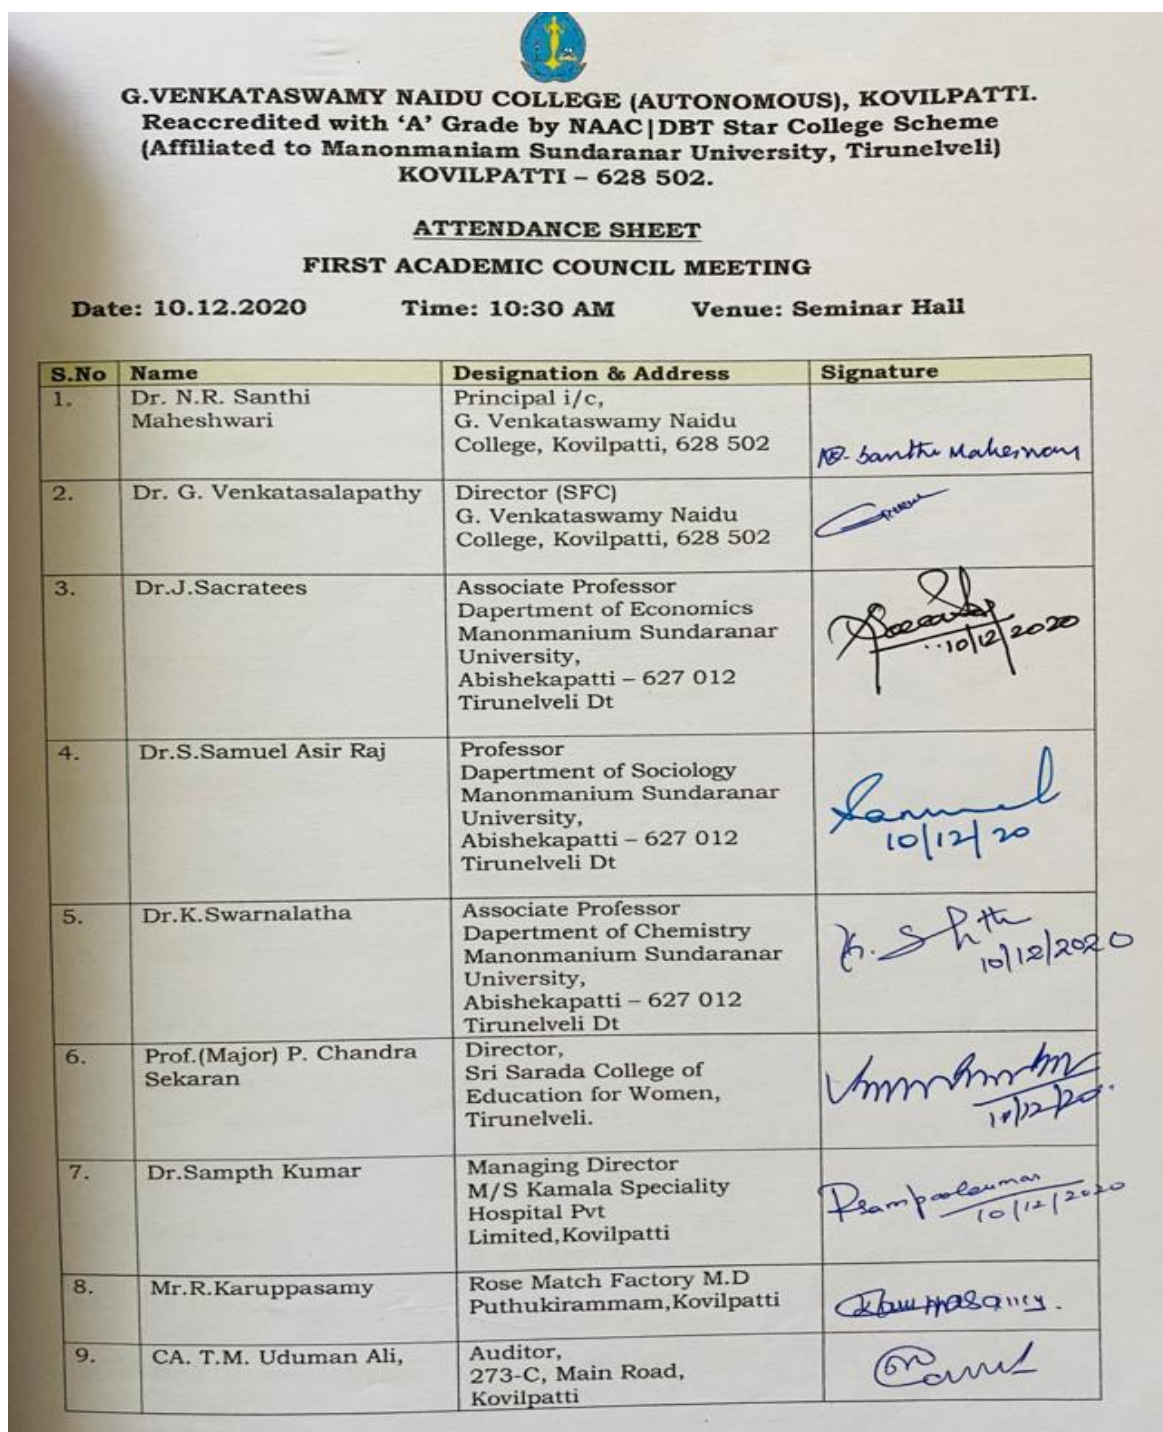 G.VENKATASWAMY NAIDU COLLEGE (AUTONOMOUS), KOVILPATTI.
Reaccredited with ‘A’ Grade by NAAC|DBT Star College Scheme
(Affiliated to Manonmaniam Sundaranar University, Tirunelveli)
KOVILPATTI – 628 502.
ATTENDANCE SHEET
FIRST ACADEMIC COUNCIL MEETING
Date: 10.12.2020 Time: 10:30 AM Venue: Seminar Hall
S.No Name Designation & Address Signature
1. Dr. N.R. Santhi Principal i/c,
Maheshwari G. Venkataswamy Naidu
College, Kovilpatti, 628 502
Santhi Maheswari
2. Dr. G. Venkatasalapathy Director (SFC)
G. Venkataswamy Naidu
College, Kovilpatti, 628 502
3. Dr.J.Sacratees Associate Professor
Dapertment of Economics
Manonmanium Sundaranar
University,
Abishekapatti – 627 012
Tirunelveli Dt
10/12/2020
4. Dr.S.Samuel Asir Raj Professor
Dapertment of Sociology
Manonmanium Sundaranar
University,
Abishekapatti – 627 012
Tirunelveli Dt
Samuel
10/12/20
5. Dr.K.Swarnalatha Associate Professor
Dapertment of Chemistry
Manonmanium Sundaranar
University,
Abishekapatti – 627 012
Tirunelveli Dt
10/12/2020
6. Prof.(Major) P. Chandra Director,
Sekaran Sri Sarada College of
Education for Women,
Tirunelveli.
10/12/20.
7. Dr.Sampth Kumar Managing Director
M/S Kamala Speciality
Hospital Pvt
Limited,Kovilpatti
10/12/2020
8. Mr.R.Karuppasamy Rose Match Factory M.D
Puthukirammam,Kovilpatti
9. CA. T.M. Uduman Ali, Auditor,
273-C, Main Road,
Kovilpatti